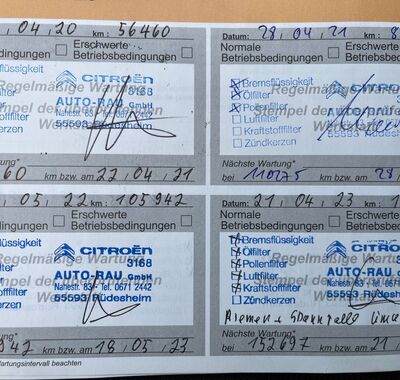 , 04, 20 km: 56460
Erschwerte
bedingungen Betriebsbedingungen
Bremsflüssigkeit
CITROËN
Regelmäßige Wartung
3168
AUTO-RAU GmbH
Stempel der
Nahestr. 63 · Tel. 0671 2442
55593 Rüdesheim
Zündkerzen
Wartung*
km bzw. am 22, 04, 21
Datum: 28, 04, 21 km: 8
Normale Erschwerte
Betriebsbedingungen Betriebsbedingungen
Bremsflüssigkeit
CITROËN
Ölfilter
Regelmäßige Wartung
3168
Pollenfilter
AUTO-RAU GmbH
Luftfilter
Stempel der
Kraftstofffilter
55593 Rüdesheim
Zündkerzen
Nächste Wartung*
bei 110275 km bzw. am 28
, 05, 22 km: 105942
Erschwerte
bedingungen Betriebsbedingungen
Bremsflüssigkeit
CITROËN
Regelmäßige Wartung
3168
AUTO-RAU GmbH
Nahestr. 63 · Tel. 0671 2442
55593 Rüdesheim
Zündkerzen
Wartung*
942 km bzw. am 18, 05, 23
Wartungsintervall beachten
Datum: 21, 04, 23 km: 1
Normale Erschwerte
Betriebsbedingungen Betriebsbedingungen
Bremsflüssigkeit
CITROËN
Ölfilter
Regelmäßige Wartung
3168
Pollenfilter
AUTO-RAU GmbH
Luftfilter
Nahestr. 63 · Tel. 0671 2442
Kraftstofffilter
55593 Rüdesheim
Zündkerzen
Riemen + Spannrolle
Nächste Wartung*
bei 152697 km bzw. am 21